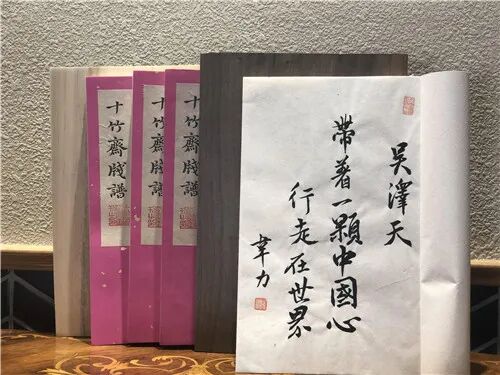 十竹齋牋譜
十竹齋牋譜
十竹齋牋譜
吳澤天
帶著一顆中國心
行走在世界
韋力